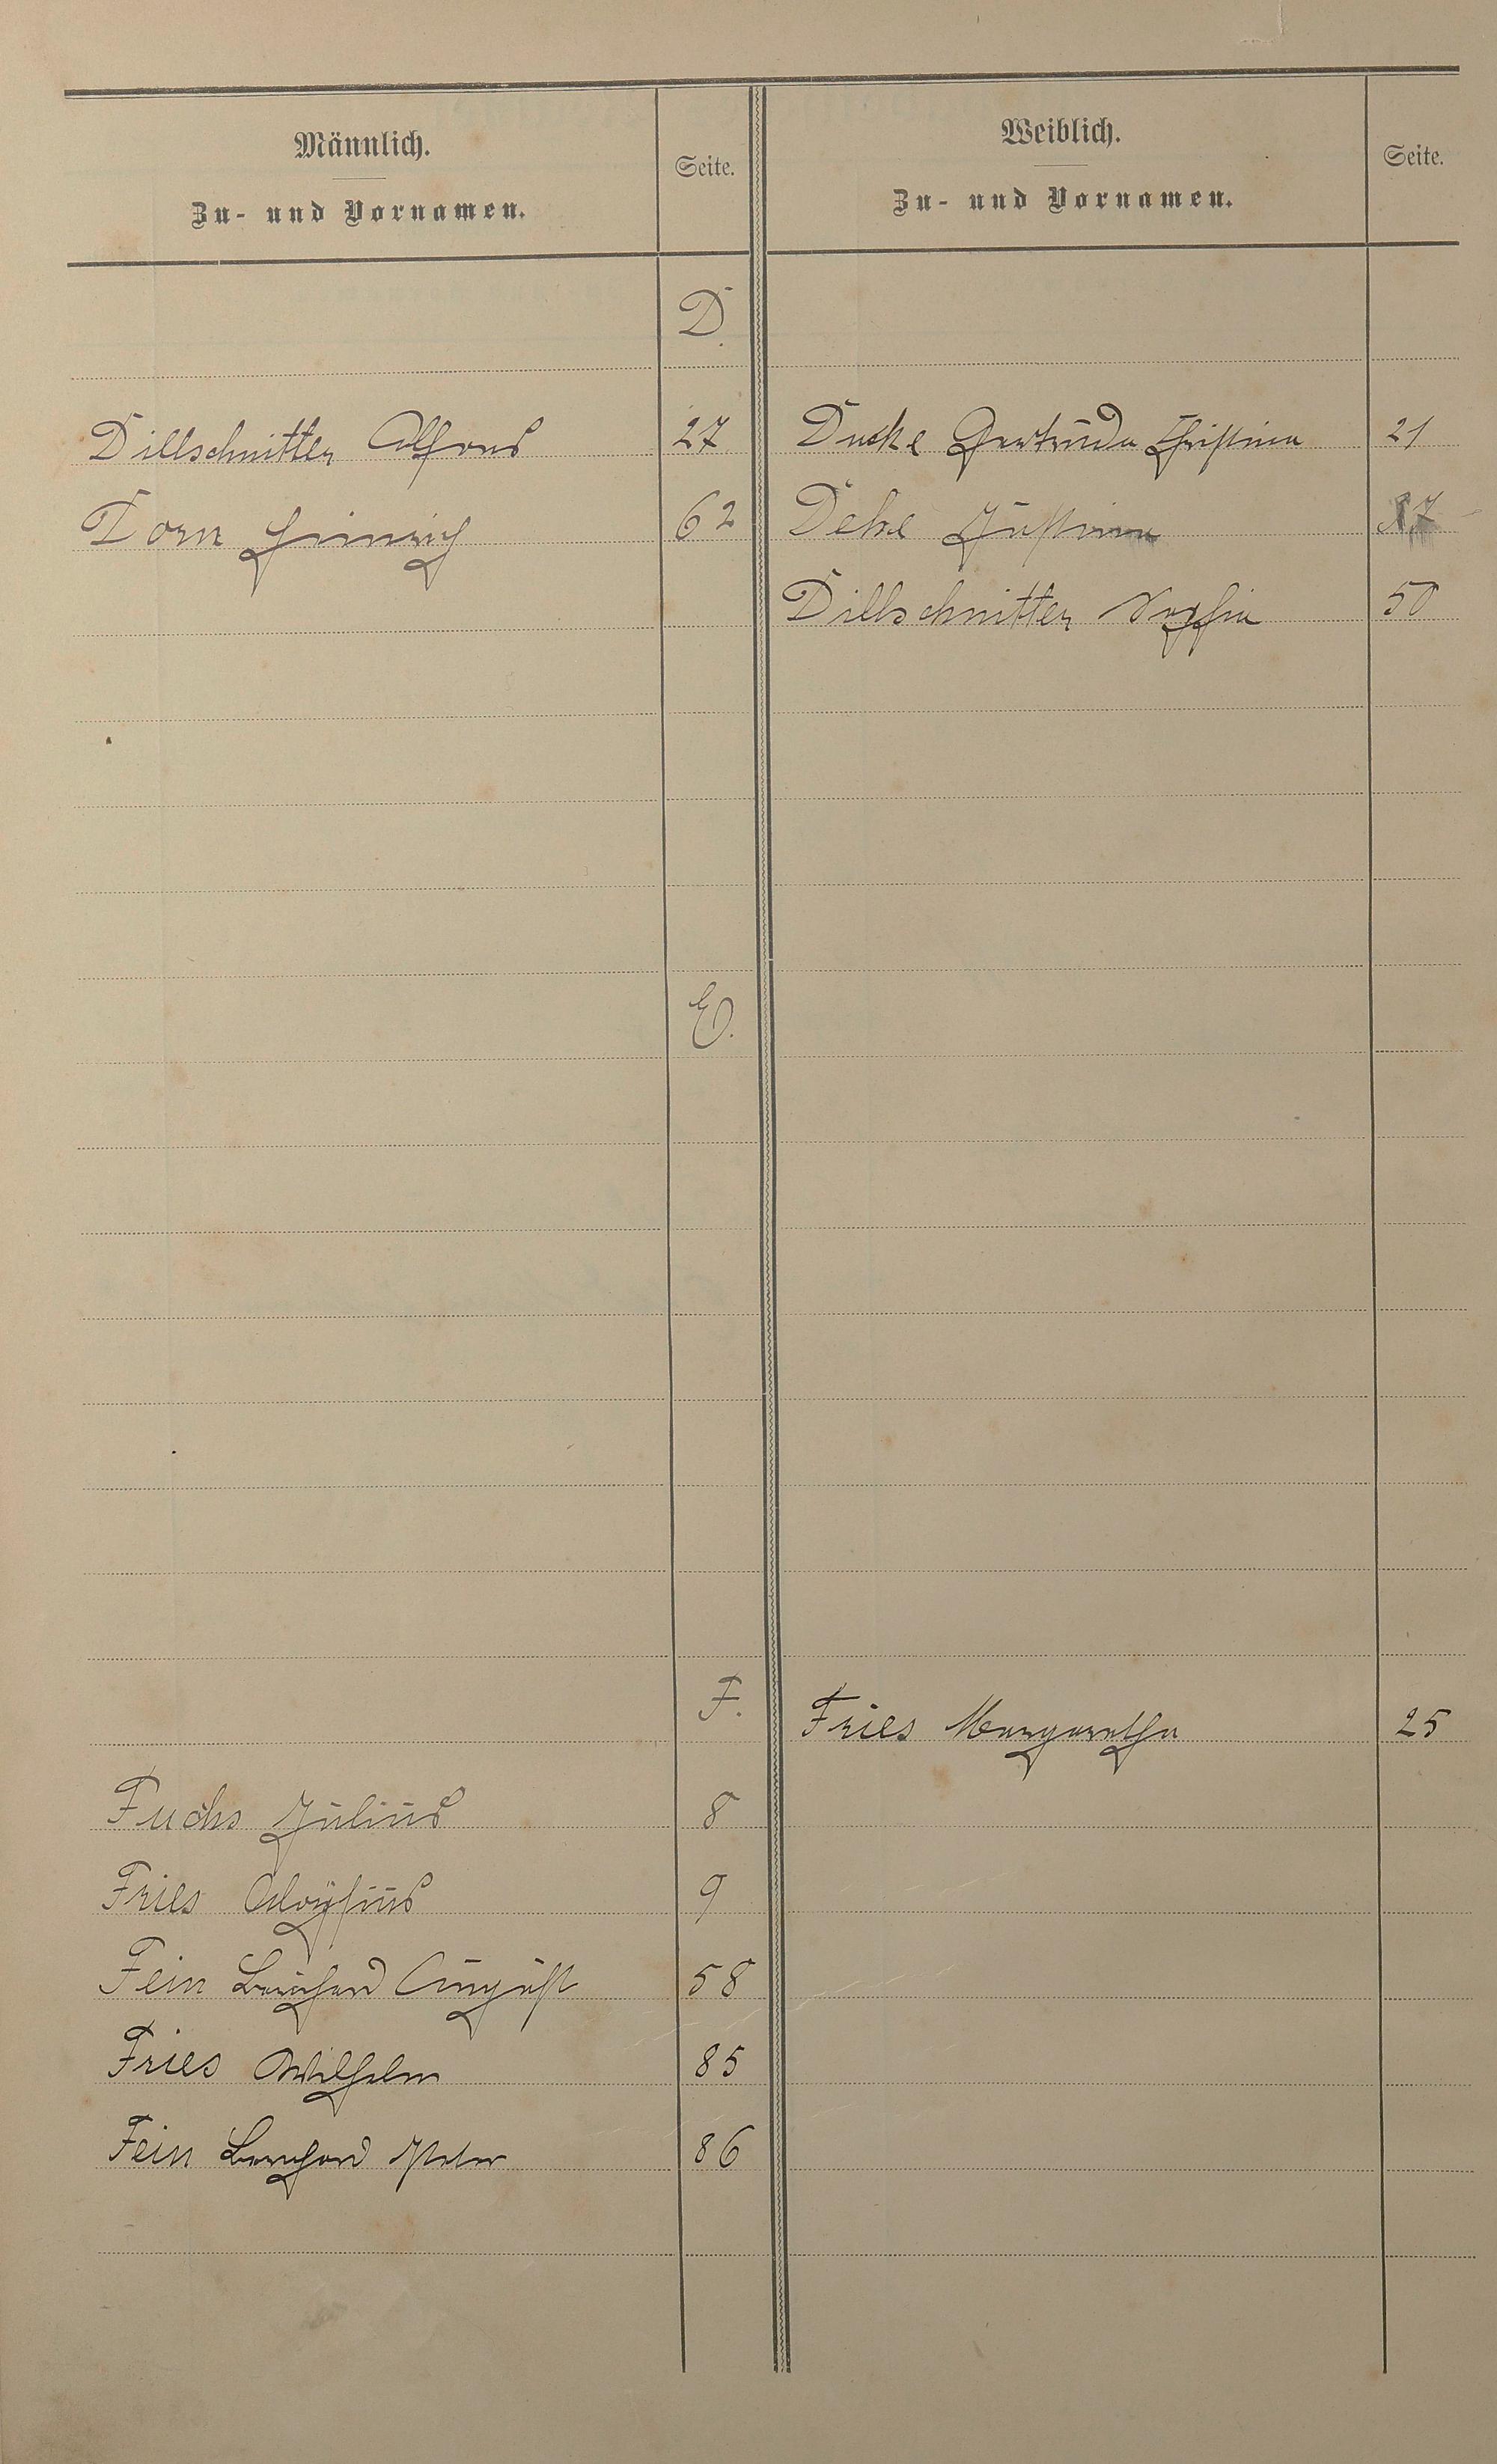 Männlich.
Zu- und Vornamen.
Seite.
Weiblich.
Zu- und Vornamen.
Seite.
D.
Dillschnitter Alfons 27
Duske Gertruda Christina 21
Dorn Heinrich 62
Justina
Dillschnitter Sophia 50
E.
F.
Fries Margaretha 25
Fuchs Julius 8
Fries Aloÿsius 9
Fein August 58
Fries Wilhelm 85
Fein Bernhard Peter 86